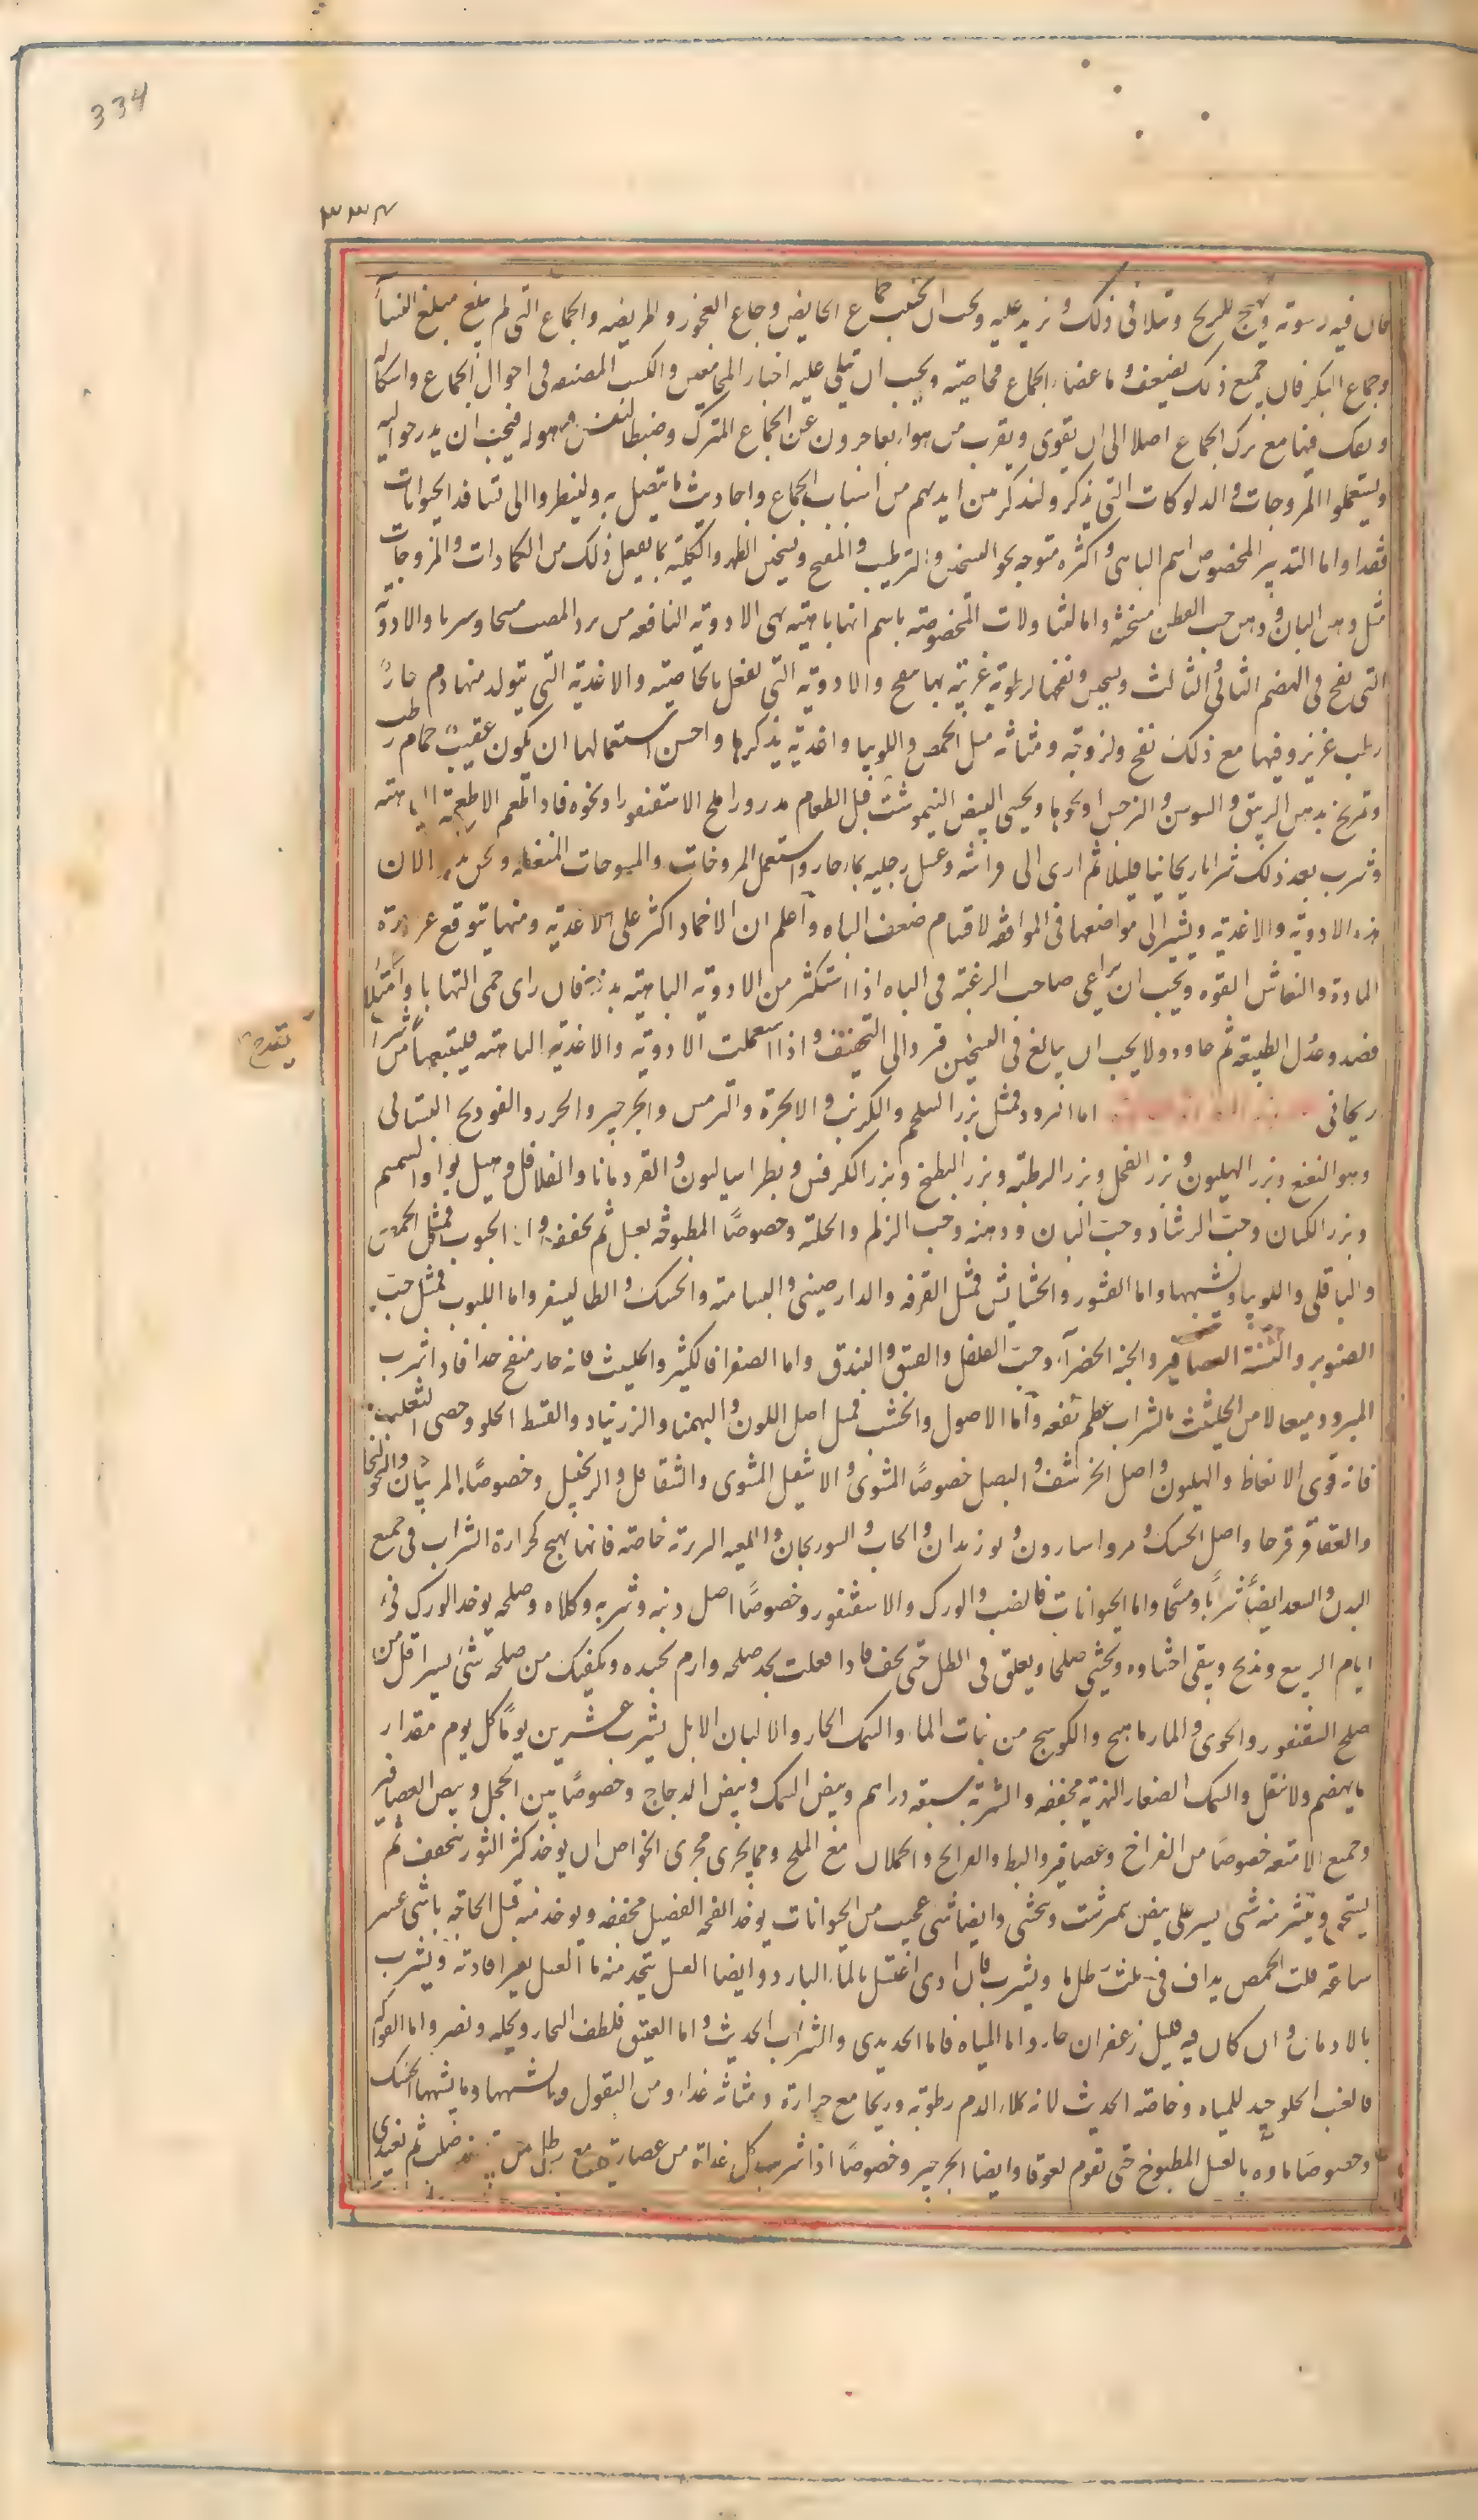 334
٣٣٤
كان فيه رسوته ويهيج للريح وتلافى ذلك ونزيد عليه ويجب ان يجتنب جماع الحايض وجماع العجوز والمريضه والجماع التى لم يبلغ مبلغ النساء
وجماع البكر فان جميع ذلك يضعف اعضاء الجماع بخاصيته ويجب ان تتلى عليه اخبار المجامعين والكتب المصنفه فى احوال الجماع واشكاله
مع ترك الجماع اصلا الى ان يقوى ويقرب من هواء عن الجماع المترك وضبط النفس فيجب ان يدرجوا اليه
ويستعملوا المروخات والدلوكات التى نذكر ولنذكر من ايديهم من اسباب الجماع واحاديث ما يتصل به ولينظروا الى تسافد الحيوانات
فقد واما التدبير المخصوص باسم الباهى واكثره متوجه نحو التسخين والترطيب والنفخ وتسخين الظهر والكليه بما يفعل ذلك من الكمادات والمروخات
مثل دهن البان ودهن حب القطن مسخنه واما التناولات المخصوصه باسم انها باهيته هى الادويه النافعه من برد العصب والادويه
التى تنفخ فى الهضم الثانى والثالث ونفخها لرطوبه غريبه بها والادويه التى تفعل بالخاصيته والاغذيه التى يتولد منها دم حار
رطب غزير وفيها مع ذلك نفخ ولزوجه ومتانه مثل الحمص واللوبيا واغذيه يذكرها واحسن استعمالها ان يكون عقيب حمام رطب
وتمريخ بدهن الزيبق والسوسن والنرجس او نحوها ويحسى البيض النيمرشت قبل الطعام مدرورا ملح الاسقنقور او نحوه فاذا طعم الاطعمه الباهيه
وشرب بعد ذلك شرابا ريحانيا قليلا ثم اوى الى فراشه وغسل رجليه بماء حار واستعمل المروخات والمسوحات ونحن الان
هذه الادويه والاغذيه ويشير الى مواضعها فى الموافقه لاقسام ضعف الباه واعلم ان الاعتماد اكثر على الاغذيه ومنها يتوقع غزارة
المادة وانتعاش القوه ويجب ان يراعى صاحب الرغبه فى الباه اذا استكثر من الادويه الباهيه بدنه فان راى حمى التهابا وامتلا
فصد وعدل الطبيعه ثم عاود ولا يجب ان يبالغ فى التسخين فيودى الى التجفيف واذا استعملت الادويه والاغذيه الباهيه فليتبعها من شراب
ريحانى اما البزور فمثل بزر السلجم والكرنب والانجرة والترمس والجرجير والجزر والفودنج البستانى
وهو النعنع وبزر الهليون وبزر الفجل وبزر الرطبه وبزر البطيخ وبزر الكرفس وبطراساليون والقردمانا والفلافل وهيل بوا والسمسم
وبزر الكتان وحب الرشاد وحب البان ودهنه وحب الزلم والحلبه وخصوصا المطبوخه بعسل ثم يجفف واما الحبوب فمثل الحمص
والباقلى واللوبيا وشبهها واما القشور والخشايش فمثل القرفه والدارصينى والبسباسه والحسك والطاليسفر واما اللبوب فمثل حب
الصنوبر والسنة العصافير والحبه الخضراء وحب الفلفل والفستق والبندق واما الصموغ فالكثير والحلتيث فانه حار منفخ جدا فاذا شرب
المبرود مثقالا من الحلتيث بالشراب عظم نفعه واما الاصول والخشب فمثل اصل اللوف والبهمنان والزرنباد والقسط الحلو وخصى الثعلب
فانه قوى الانعاظ والهليون واصل الخرشف والبصل خصوصا المشوى والاشقيل المشوى والشقاقل والزنجبيل وخصوصا المربيان والخولنجان
والعاقرقرحا واصل الحسك ومرو اسارون وبوزيدان والسورنجان والميعه خاصه فانها تهيج لحرارة الشراب فى جميع
البدن والسعد ايضا شربا ومسحا واما الحيوانات فالضب والورك والاسقنقور وخصوصا اصل ذنبه وسرته وكلاه وملحه يوخذ الورك فى
ايام الربيع ويذبح ويبقى احشاوه ويحشى ملحا ويعلق فى الظل حتى يجف فاذا فعلت يجد ملحه وارم بجسده ويكفيك من ملحه شى يسير اقل من
ملح السقنقور والجرى والمارماهيج والكوسج من نبات الماء والسمك الحار والالبان الابل يشرب عشرين يوما كل يوم مقدار
ما يهضم ولا يثقل والسمك الصغار النهريه مجففه والشربه سبعه دراهم وبيض السمك وبيض الدجاج وخصوصا بيض الحجل وبيض العصافير
وجميع الادمغه خصوصا من الفراخ وعصافير والبط والفراريج والحملان مع الملح ومما يجرى مجرى الخواص ان يوخذ ذكر الثور يجفف ثم
يسحق وينثر منه شى يسير على بيض نيمرشت ويحسى وايضا شى عجيب من الحيوانات يوخذ انفحه الفصيل مجففه ويوخذ منه قبل الحاجه باثنى عشر
ساعه قلت الحمص يداف فى ثلث رطل ماء ويشرب فان اذى اغتسل بالماء البارد وايضا العسل يتخذ منه ماء العسل بغير افاويه ويشرب
بالادمان وان كان فيه قليل زعفران جاز واما المياه فاما الحديدى والشراب الحديث واما العتيق فلطف البخار ويحلله ونصير واما الفواكه
فالعنب الحلو جيد للمياه وخاصه الحديث لانه يملاء الدم رطوبه وريحا مع حرارة ومتانه غذاء ومن البقول وما يشبهها الحسك
وخصوصا ماوه بالعسل المطبوخ حتى يقوم لعوقا وايضا الجرجير وخصوصا اذا شرب كل غداة من عصارته مع رطل من
يقدح